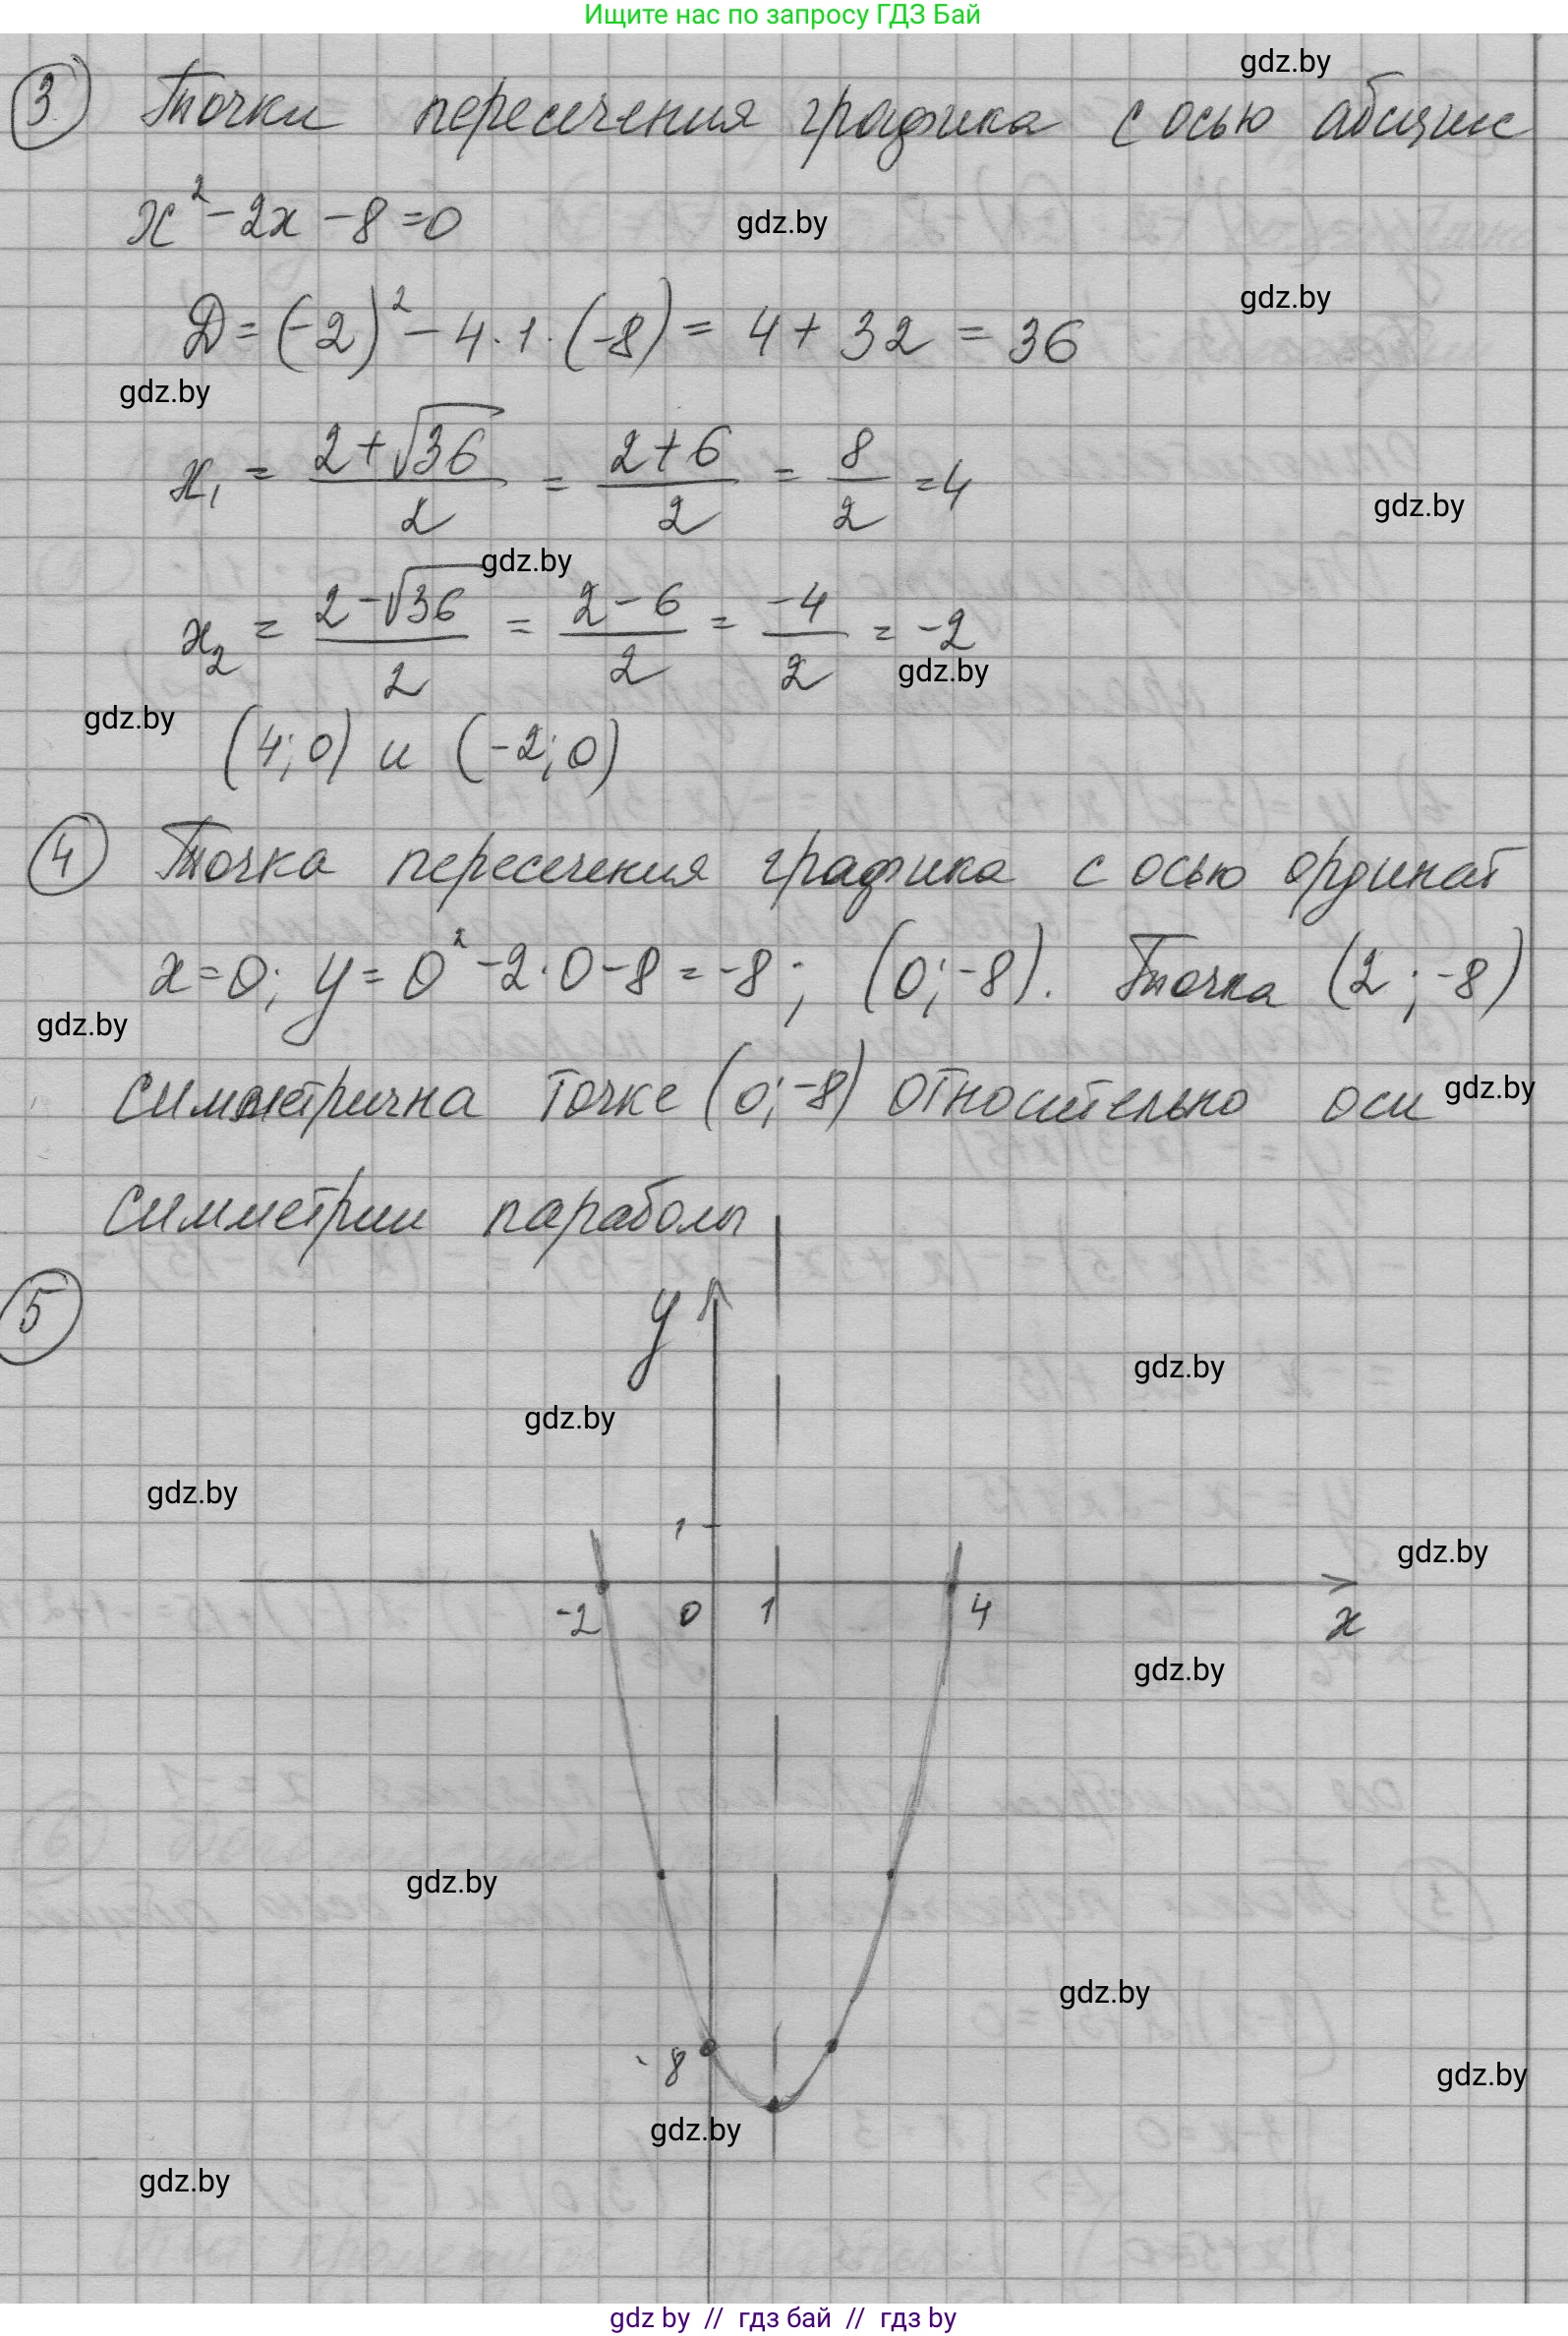 Ищите нас по запросу ГДЗ Бай
gdz.by
③ Точки пересечения графика с осью абсцисс
x² - 2x - 8 = 0
gdz.by
gdz.by
D = (-2)² - 4·1·(-8) = 4 + 32 = 36
gdz.by
x₁ = (2+√36)/2 = (2+6)/2 = 8/2 = 4
gdz.by
gdz.by
x₂ = (2-√36)/2 = (2-6)/2 = -4/2 = -2
gdz.by
gdz.by
(4; 0) и (-2; 0)
④ Точка пересечения графика с осью ординат
x = 0; y = 0² - 2·0 - 8 = -8; (0; -8). Точка (2; -8)
gdz.by
симметрична точке (0; -8) относительно оси
gdz.by
симметрии параболы
⑤
y
gdz.by
gdz.by
gdz.by
1
gdz.by
-2 0 1 4 x
gdz.by
gdz.by
gdz.by
-8
gdz.by
gdz.by
gdz.by
gdz by // гдз бай // гдз by